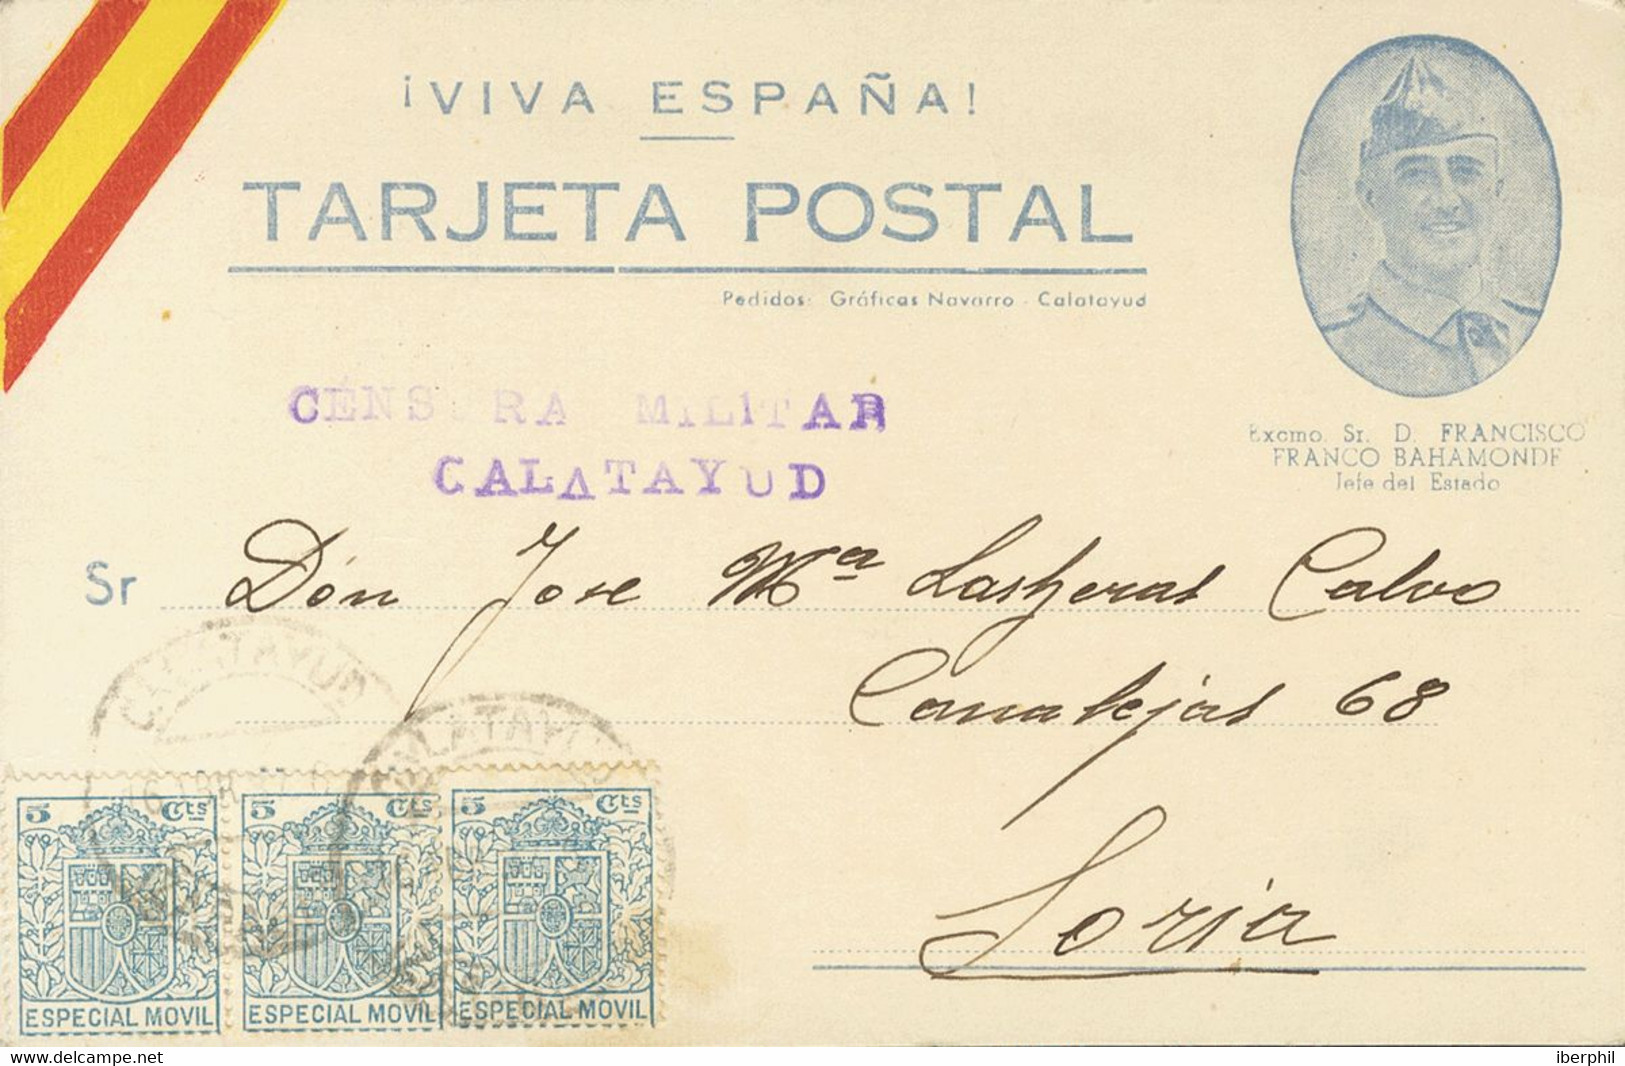 ¡VIVA ESPAÑA!
TARJETA POSTAL
Pedidos: Gráficas Navarro - Calatayud
Excmo. Sr. D. FRANCISCO
FRANCO BAHAMONDE
Jefe del Estado
CENSURA MILITAR
CALATAYUD
Sr Dón Jose Mª Lasheras Calvo
Canalejas 68
Soria
CALATAYUD
CALATAYUD
5 Cts 5 Cts 5 Cts
ESPECIAL MOVIL ESPECIAL MOVIL ESPECIAL MOVIL
delcampe.net
iberphil